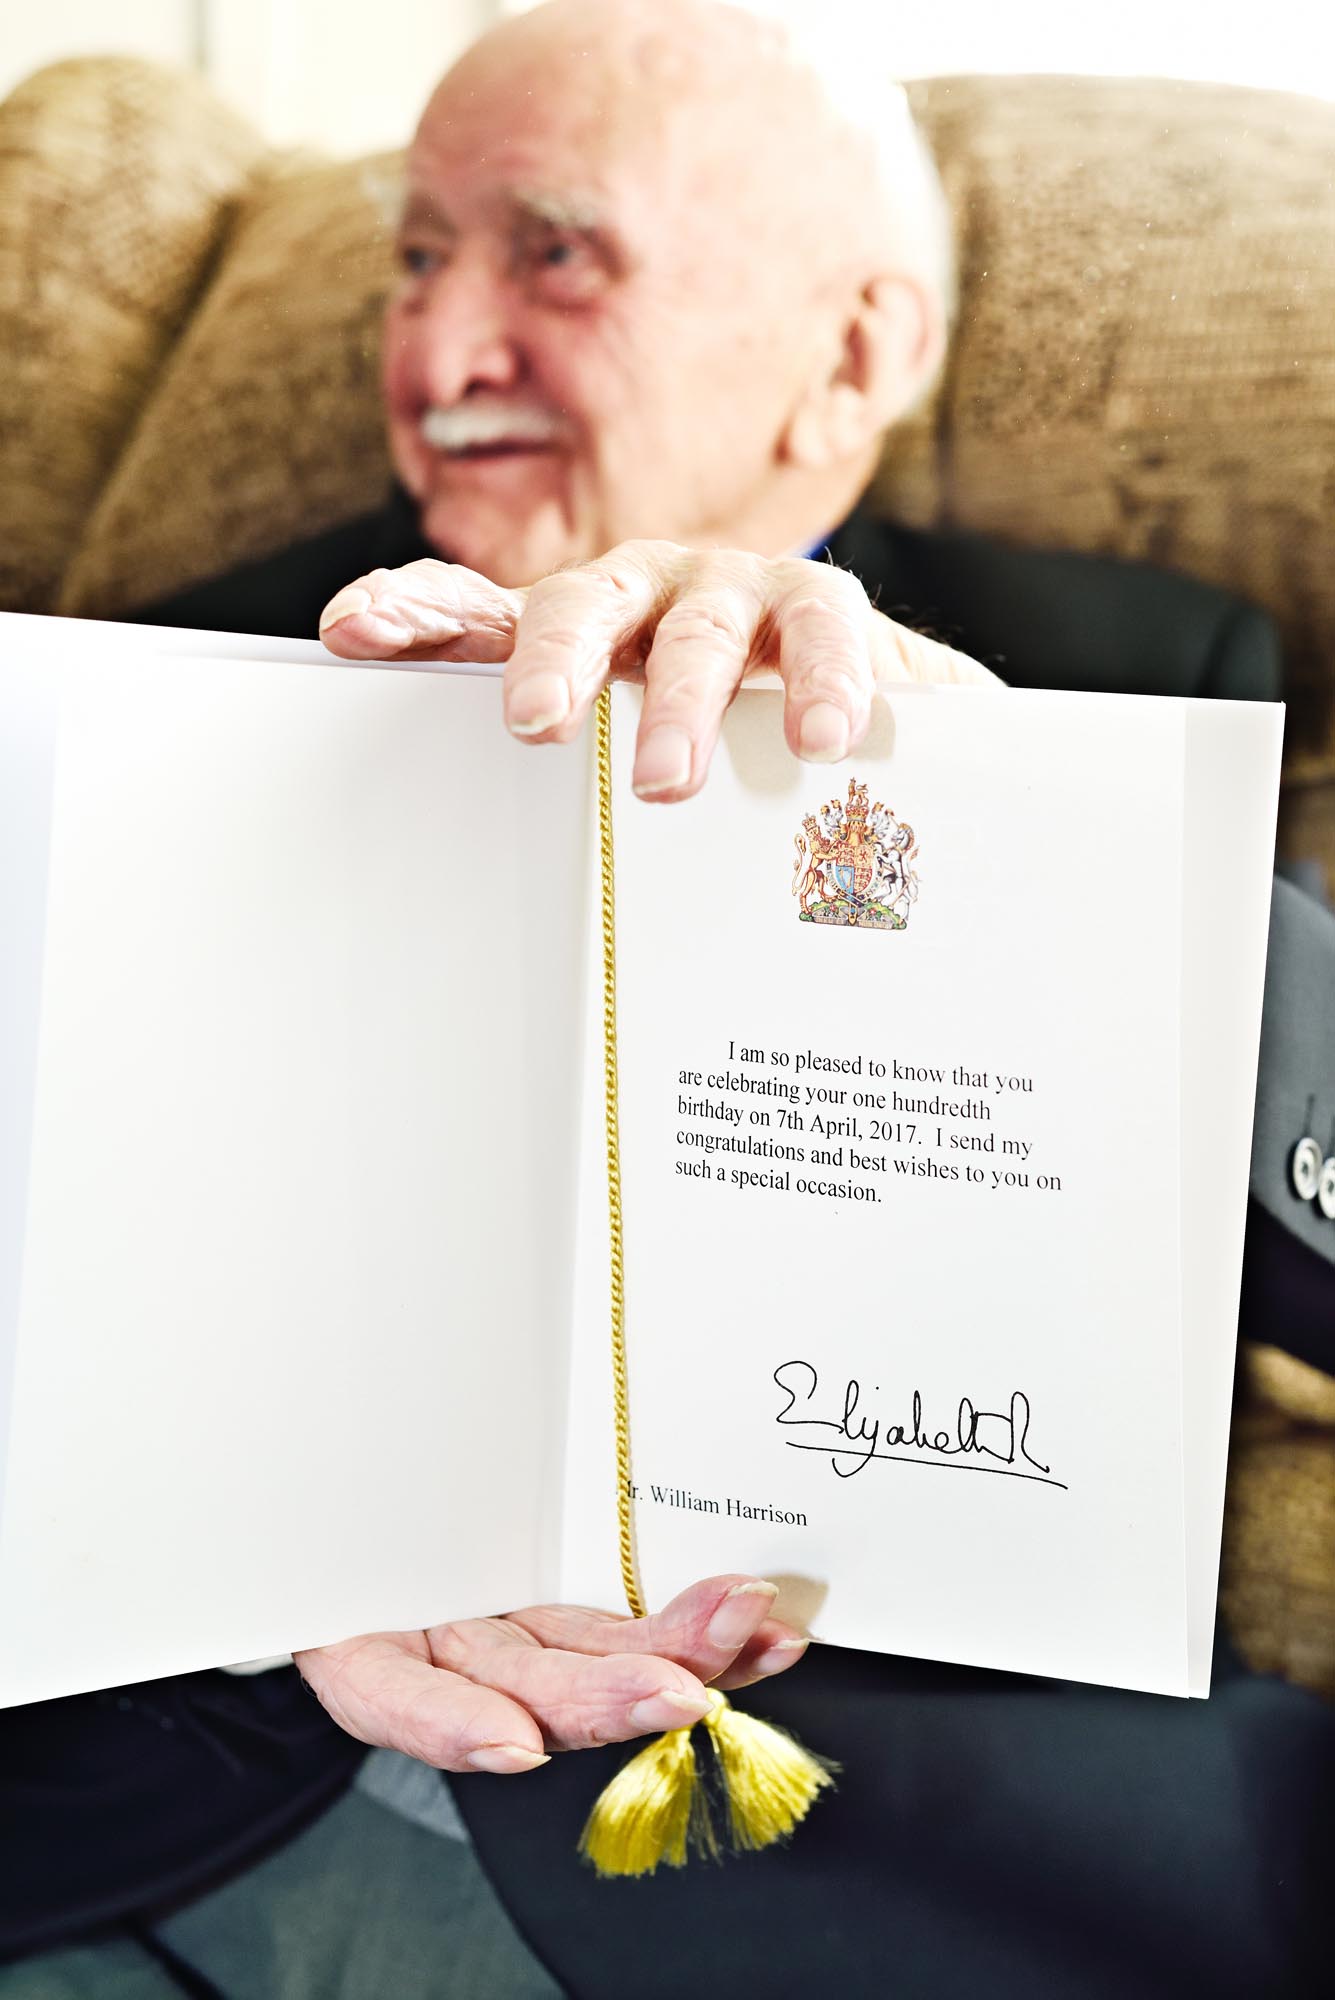 I am so pleased to know that you
are celebrating your one hundredth
birthday on 7th April, 2017. I send my
congratulations and best wishes to you on
such a special occasion.
Elizabeth R
Mr. William Harrison